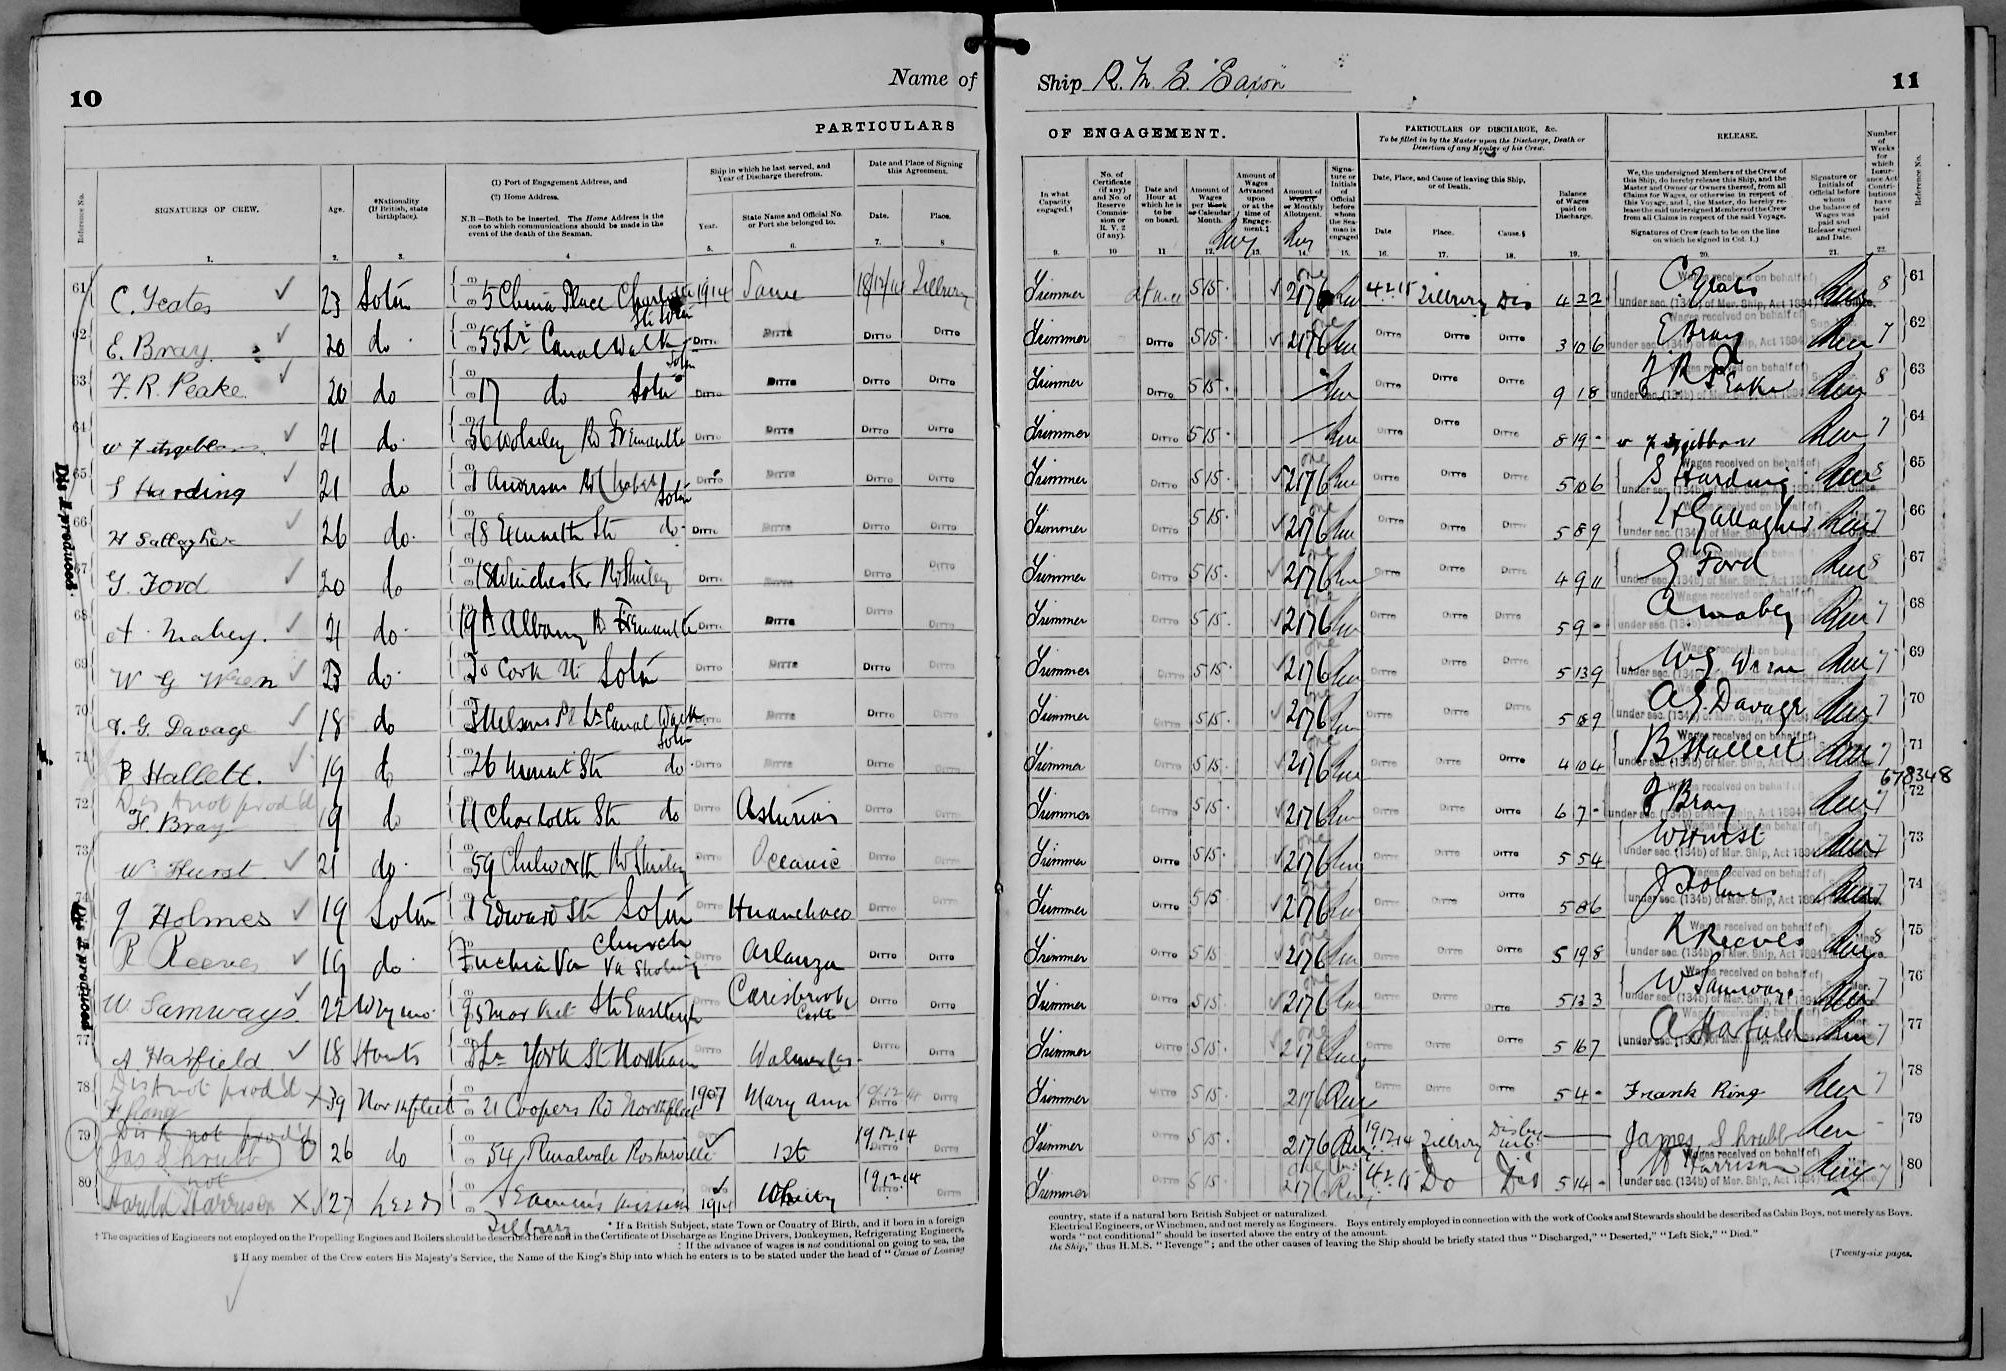 10
Name of
PARTICULARS
Reference No.
SIGNATURES OF CREW.
Age.
*Nationality (If British, state birthplace).
(1) Port of Engagement Address, and
(2) Home Address.
N.B.—Both to be inserted. The Home Address is the one to which communications should be made in the event of the death of the Seaman.
Ship in which he last served, and Year of Discharge therefrom.
Year.
State Name and Official No. or Port she belonged to.
Date and Place of Signing this Agreement.
Date.
Place.
1. 2. 3. 4 5. 6. 7. 8
61 C. Yeates 23 Soton 5 China Place 1914 Same 18/12/14 Tilbury
62 E. Bray 20 do 55 Lr Canal Walk Soton Ditto Ditto Ditto Ditto
63 F. R. Peake 20 do 17 do Soton Ditto Ditto Ditto Ditto
64 21 do 56 Wolseley Rd Fremantle Ditto Ditto Ditto Ditto
65 S Harding 21 do Soton Ditto Ditto Ditto Ditto
66 H Gallagher 26 do 18 St do Ditto Ditto Ditto Ditto
67 G. Ford 20 do Winchester Rd Shirley Ditto Ditto Ditto Ditto
68 A. Mabey. 21 do 19A Albany Rd Fremantle Ditto Ditto Ditto
69 W G Wren 23 do Cook St Soton Ditto Ditto Ditto Ditto
70 A. G. Davage 18 do Lr Canal Walk Soton Ditto Ditto Ditto Ditto
71 B Hallett. 19 do 26 St do Ditto Ditto Ditto Ditto
Dis A not prod'd
72 F. Bray 19 do 11 Charlotte St do Ditto Asturias Ditto Ditto
73 W. Hurst 21 do 59 Chilworth Rd Shirley Ditto Oceanic Ditto Ditto
74 J Holmes 19 Soton Edward St Soton Ditto Huanchaco Ditto Ditto
75 R Reeves 19 do Church Ditto Arlanza Ditto Ditto
76 W. Samways 22 Market St Eastleigh Ditto Carisbrook Castle Ditto Ditto
77 A Harfield 18 Hants York St Northam Ditto Ditto Ditto
Dis A not prod'd
78 F Ring 39 Northfleet 21 Coopers Rd Northfleet 1907 Mary Ann Ditto Ditto
Dis A not prod'd
79 Jas Shrubb 26 do 54 Rosherville 1st 19.12.14 Ditto Ditto
80 Harold Harrison 27 Leeds Seamens Mission Tilbury 1914 Whitby 19.12.14 Ditto Ditto
Dis A produced
Dis A produced
* If a British Subject, state Town or Country of Birth, and if born in a foreign
† The capacities of Engineers not employed on the Propelling Engines and Boilers should be described here and in the Certificate of Discharge as Engine Drivers, Donkeymen, Refrigerating Engineers,
‡ If the advance of wages is not conditional on going to sea, the
§ If any member of the Crew enters His Majesty's Service, the Name of the King's Ship into which he enters is to be stated under the head of "Cause of Leaving
Ship R. M. S. "Saxon"
11
OF ENGAGEMENT.
PARTICULARS OF DISCHARGE, &c.
To be filled in by the Master upon the Discharge, Death or Desertion of any Member of his Crew.
RELEASE.
Number of Weeks for which Insurance Act Contributions have been paid
Reference No.
In what Capacity engaged.†
No. of Certificate (if any) and No. of Reserve Commission or R. V. 2 (if any).
Date and Hour at which he is to be on board.
Amount of Wages per Week or Calendar Month.
Amount of Wages Advanced upon or at the time of Engagement.‡
Amount of Weekly or Monthly Allotment.
Signature or Initials of Official before whom the Seaman is engaged
Date, Place, and Cause of leaving this Ship, or of Death.
Date
Place.
Cause.§
Balance of Wages paid on Discharge.
We, the undersigned Members of the Crew of this Ship, do hereby release this Ship, and the Master and Owner or Owners thereof, from all Claims for Wages, or otherwise in respect of this Voyage, and I, the Master, do hereby release the said undersigned Members of the Crew from all Claims in respect of the said Voyage.
Signatures of Crew (each to be on the line on which he signed in Col. 1.)
Signature or Initials of Official before whom the balance of Wages was paid and Release signed and Date.
9. 10 11 12. 13. 14. 15. 16. 17. 18. 19. 20. 21. 22.
Trimmer 5 15 2 17 6 4.2.15 Tilbury Dis 4 2 2 C Yeates 8 61
Trimmer Ditto 5 15 2 17 6 Ditto Ditto Ditto 3 10 6 E Bray 7 62
Trimmer Ditto 5 15 Ditto Ditto Ditto 9 1 8 F R Peake 8 63
Trimmer Ditto 5 15 Ditto Ditto Ditto 8 19 - 7 64
Trimmer Ditto 5 15 2 17 6 Ditto Ditto Ditto 5 10 6 S Harding 8 65
Trimmer Ditto 5 15 2 17 6 Ditto Ditto Ditto 5 8 9 H Gallagher 7 66
Trimmer Ditto 5 15 2 17 6 Ditto Ditto Ditto 4 9 11 G Ford 8 67
Trimmer Ditto 5 15 2 17 6 Ditto Ditto Ditto 5 9 - A Mabey 7 68
Trimmer Ditto 5 15 2 17 6 Ditto Ditto Ditto 5 13 9 W G Wren 7 69
Trimmer Ditto 5 15 2 17 6 Ditto Ditto Ditto A G. Davage 7 70
Trimmer Ditto 5 15 2 17 6 Ditto Ditto Ditto 4 10 4 B. Hallett 7 71
678348
Trimmer Ditto 5 15 2 17 6 Ditto Ditto Ditto 6 7 - F Bray 7 72
Trimmer Ditto 5 15 2 17 6 Ditto Ditto Ditto 5 5 4 W Hurst 7 73
Trimmer Ditto 5 15 2 17 6 Ditto Ditto Ditto 5 8 6 J Holmes 7 74
Trimmer Ditto 5 15 2 17 6 Ditto Ditto Ditto 5 19 8 R Reeves 8 75
Trimmer Ditto 5 15 2 17 6 Ditto Ditto Ditto 5 13 3 W Samways 7 76
Trimmer Ditto 5 15 2 17 6 Ditto Ditto Ditto 5 16 7 A Harfield 7 77
Trimmer Ditto 5 15 2 17 6 Ditto Ditto Ditto 5 4 - Frank Ring 7 78
Trimmer Ditto 5 15 2 17 6 19.12.14 Tilbury James Shrubb - 79
Trimmer Ditto 5 15 2 17 6 4.2.15 Do Dis 5 14 - H Harrison 7 80
Wages received on behalf of
under sec. (134b) of Mer. Ship, Act 1894
country, state if a natural born British Subject or naturalized.
Electrical Engineers, or Winchmen, and not merely as Engineers. Boys entirely employed in connection with the work of Cooks and Stewards should be described as Cabin Boys, not merely as Boys.
words "not conditional" should be inserted above the entry of the amount.
the Ship," thus H.M.S. "Revenge"; and the other causes of leaving the Ship should be briefly stated thus "Discharged," "Deserted," "Left Sick," "Died."
[Twenty-six pages.